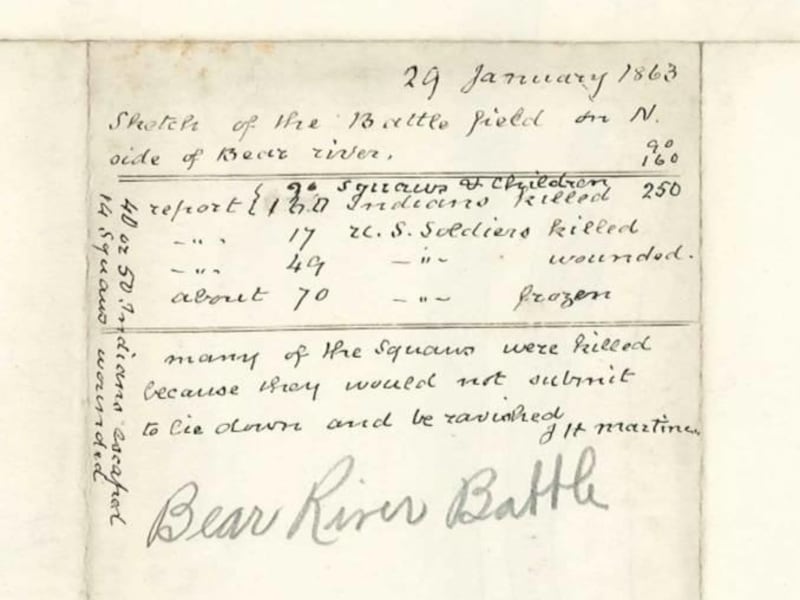 29 January 1863
Sketch of the Battle field on N.
side of Bear river.
90
160
250
{ 90 Squaws & Children
report { 160 Indians killed
-"- 17 U. S. Soldiers killed
-"- 49 -"- wounded.
about 70 -"- frozen
many of the Squaws were killed
because they would not submit
to lie down and be ravished
J H Martineau
40 or 50 Indians escaped
14 Squaws wounded
Bear River Battle